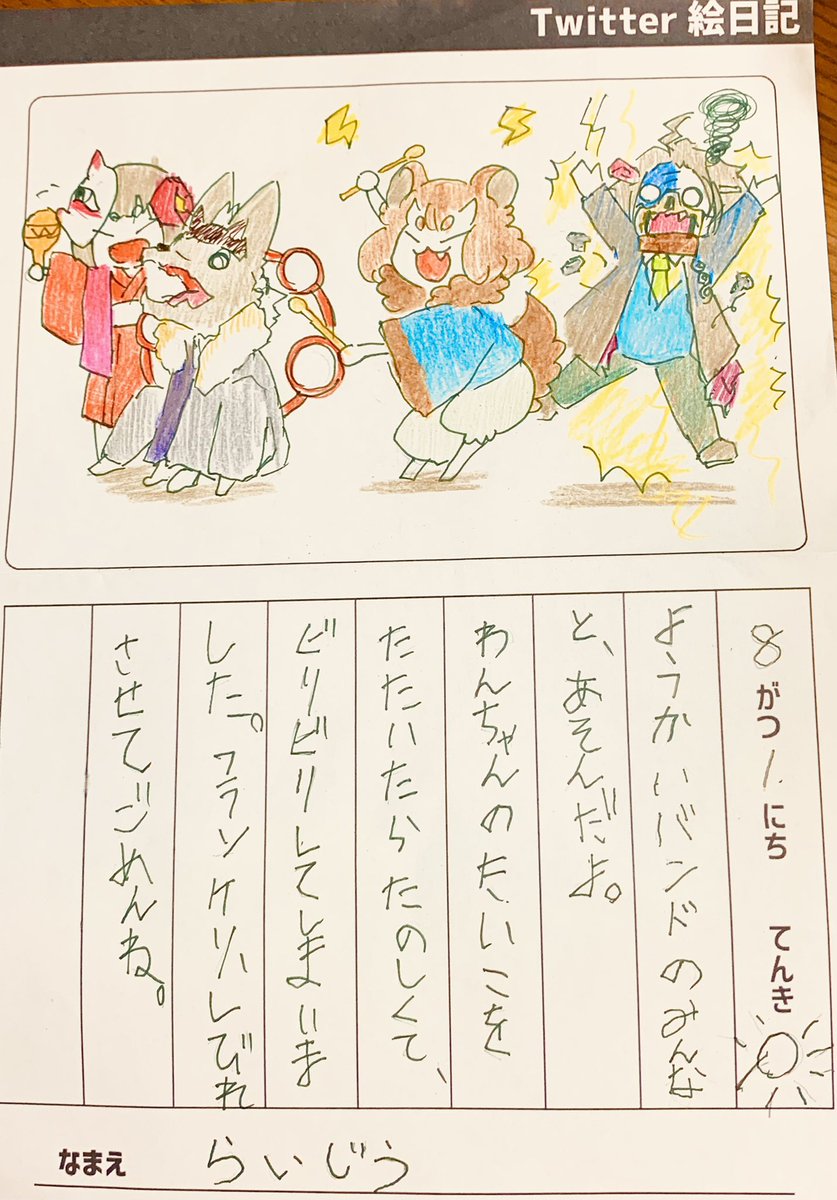 Twitter 絵日記
8がつ1にち てんき
ようかいバンドのみんな
と、あそんだよ。
わんちゃんのたいこを
たたいたらたのしくて、
ビリビリしてしまいま
した。フランケリン、しびれ
させてごめんね。
なまえ らいじう